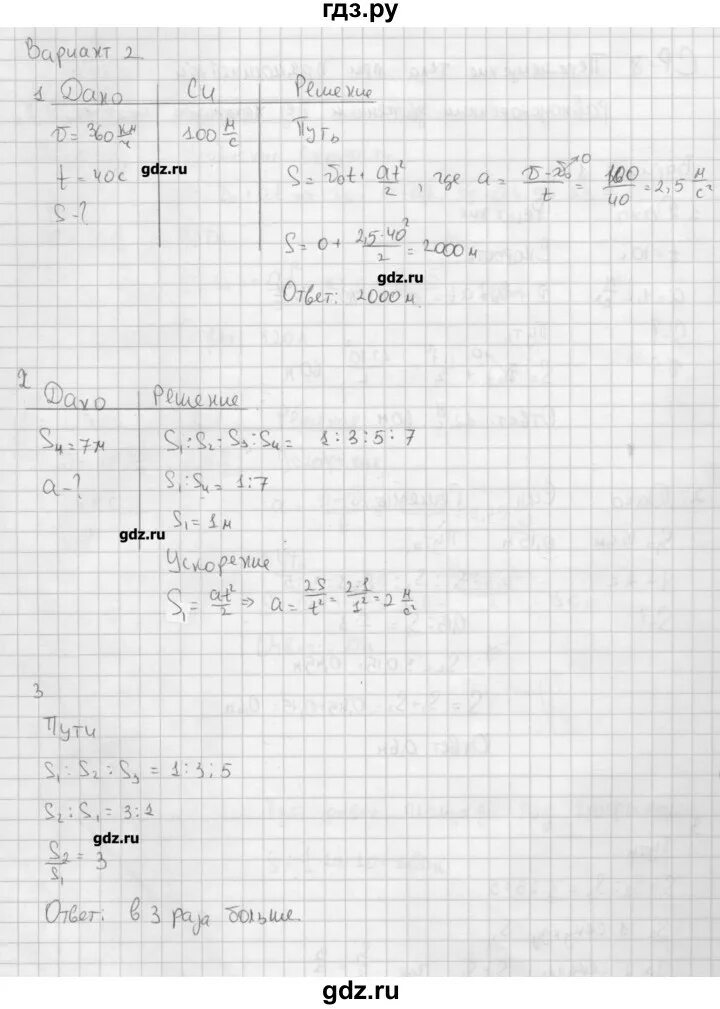 гдз.ру
Вариант 2
1 Дано СИ Решение
v = 360 км/ч 100 м/с Путь
t = 40 с gdz.ru S = v₀t + at²/2, где a = (v - v₀→0)/t = 100/40 = 2,5 м/с²
S - ?
S = 0 + 2,5·40²/2 = 2000 м
gdz.ru
Ответ: 2000 м.
2
Дано Решение
S₄ = 7 м S₁ : S₂ : S₃ : S₄ = 1 : 3 : 5 : 7
a - ? S₁ : S₄ = 1 : 7
S₁ = 1 м
gdz.ru
Ускорение
S₁ = at²/2 ⇒ a = 2S/t² = 2·1/1² = 2 м/с²
3
Пути
S₁ : S₂ : S₃ = 1 : 3 : 5
S₂ : S₁ = 3 : 1
gdz.ru
S₂/S₁ = 3
Ответ: в 3 раза больше.
gdz.ru